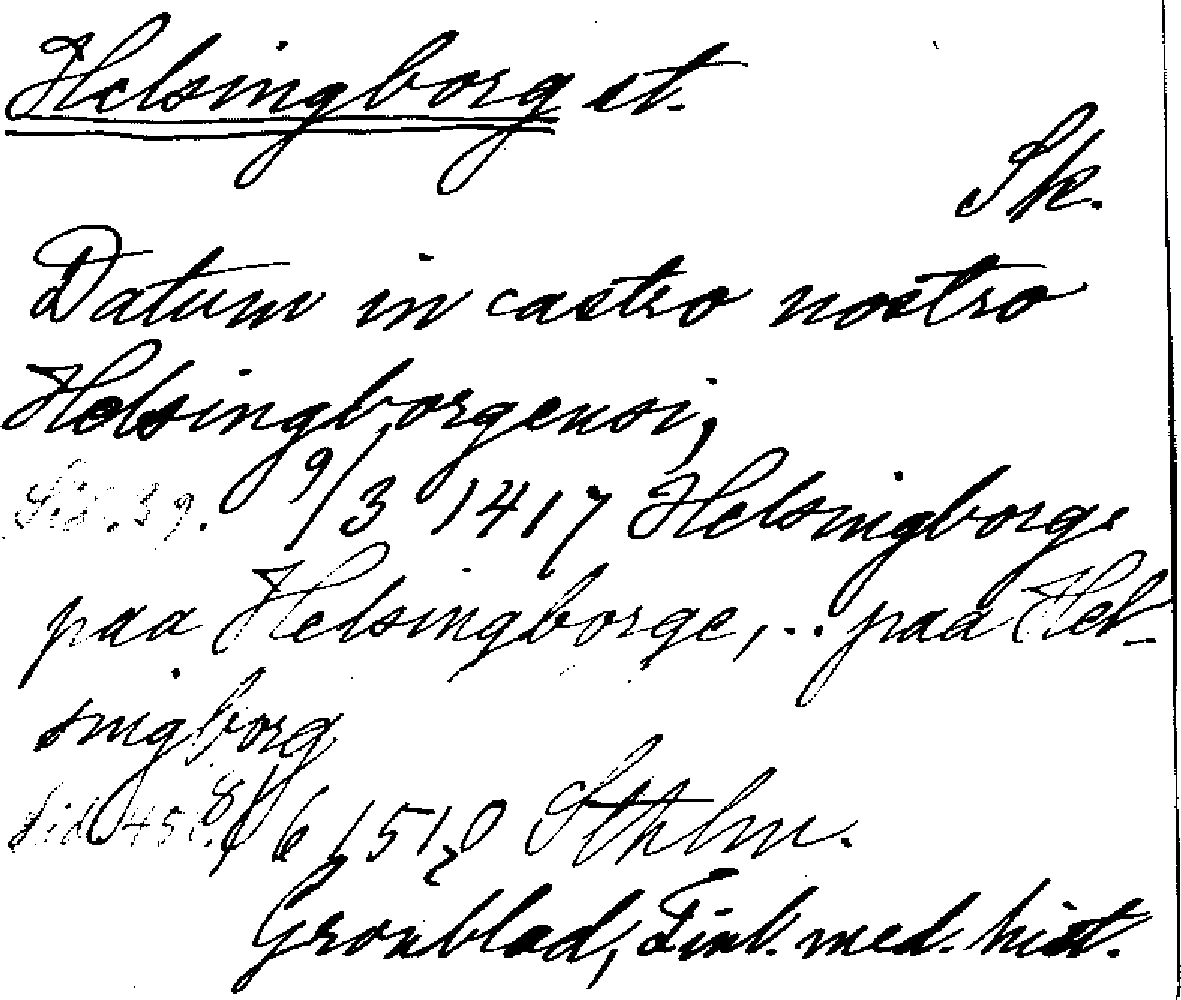 Helsingborg st.
Sk.
Datum in castro nostro
Helsingborgensi,
Sid. 39. 9/3 1417 Helsingborge
paa Helsingborge, .. paa Hel-
singborg
Sid 451. 8/6 1510 Sthlm.
Grönblad, Finl. med. hist.